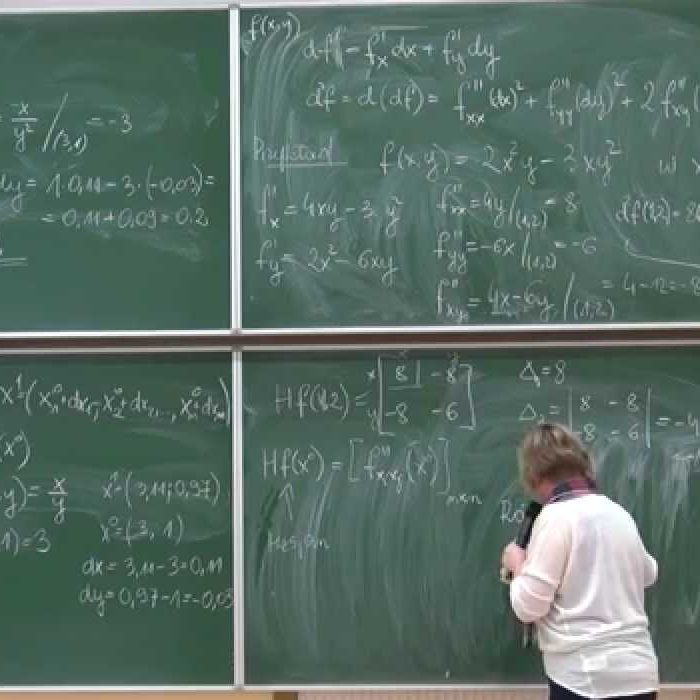 = x/y² /(3,1) = -3
dy = 1·0,11 - 3·(-0,03) =
= 0,11 + 0,09 = 0.2
f(x,y)
df = f'x dx + f'y dy
d²f = d(df) = f''xx (dx)² + f''yy (dy)² + 2 f''xy
Przykład f(x,y) = 2x²y - 3xy² w
f'x = 4xy - 3y² f''xx = 4y /(1,2) = 8
f'y = 2x² - 6xy f''yy = -6x /(1,2) = -6
f''xy = 4x - 6y /(1,2) = 4 - 12 = -8
x¹ = (x₁⁰ + dx₁, x₂⁰ + dx₂, ..., xₙ⁰ + dxₙ)
(x⁰)
y) = x/y
1) = 3
x¹ = (3,11; 0,97)
x⁰ = (3, 1)
dx = 3,11 - 3 = 0,11
dy = 0,97 - 1 = -0,03
Hf(1,2) = [8 -8
-8 -6]
Δ₁ = 8
Δ₂ = |8 -8
-8 -6| =
Hf(x⁰) = [f''xixj (x⁰)] n×n
Hesjan